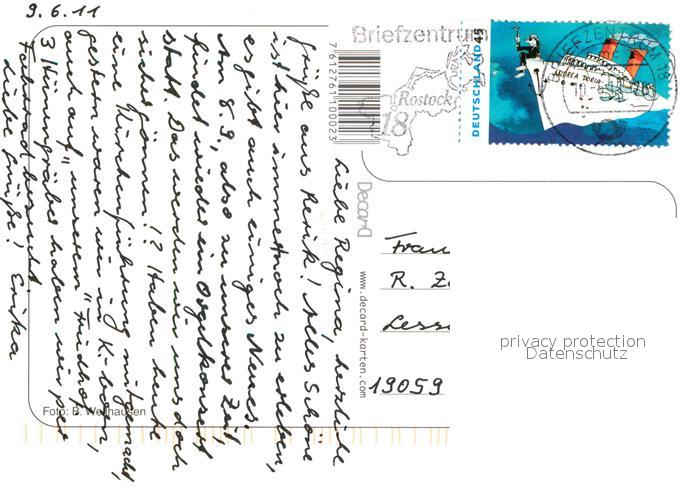 9.6.11
Liebe Regina, herzliche
Grüße aus Rerik! Alles Schöne
ist hier immer noch zu erleben,
es gibt auch einiges Neues.
Am 8.9, also zu unserer Zeit
findet wieder ein Orgelkonzert
statt. Das werden wir uns doch
nicht gönnen!? Haben heute
eine Kirchenführung mitgemacht,
gestern waren wir in K-born,
auch auf "unserem" Friedhof,
3 Hünengräber haben wir per
Fahrrad besucht
Liebe Grüße! Erika
Foto: B. Wellhausen
7612761100023
Decard
www.decard-karten.com
Briefzentrum
Rostock
18
DEUTSCHLAND 45
ANDREA TORIA
BRIEFZENTRUM 18
Frau
R.
19059
privacy protection
Datenschutz